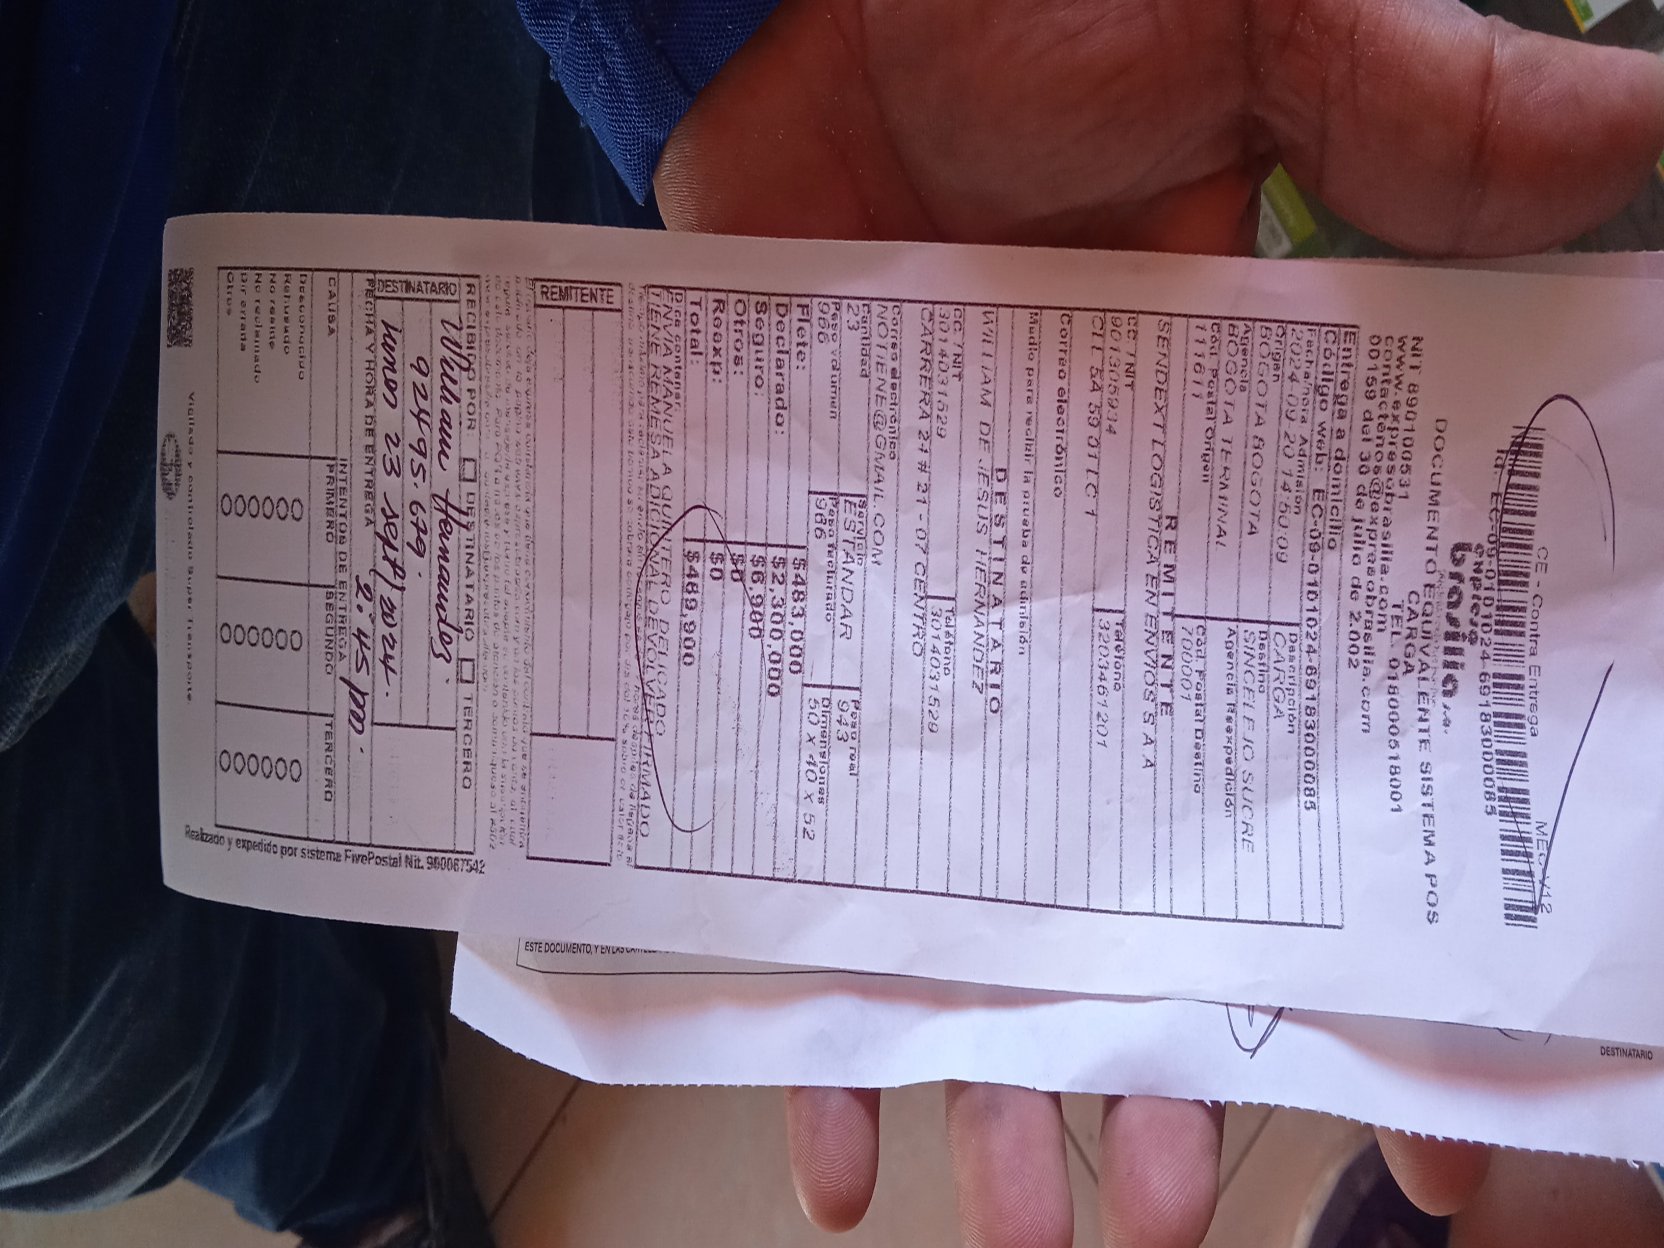 CE - Contra Entrega
Id: EC-09-0101024-69183000085
expreso
brasilia s.a.
DOCUMENTO EQUIVALENTE SISTEMA POS
CARGA
NIT 890100531
TEL. 018000518001
www.expresobrasilia.com
contactenos@expresobrasilia.com
00159 del 30 de julio de 2.002
Entrega a domicilio
Código Web: EC-09-0101024-69183000085
Fecha/hora Admisión
2024-09-20 14:50:09
Descripción
CARGA
Origen
BOGOTA BOGOTA
Destino
SINCELEJO SUCRE
Agencia
BOGOTA TERMINAL
Agencia Reexpedición
Cód. Postal Origen
111611
Cód. Postal Destino
700001
REMITENTE
SENDEXT LOGISTICA EN ENVIOS S A A
CC / NIT
901305914
Teléfono
3203461201
CLL 5A 59 01 LC 1
Correo electrónico
Medio para recibir la prueba de admisión
DESTINATARIO
WILLIAM DE JESUS HERNANDEZ
CC / NIT
3014031529
Teléfono
3014031529
CARRERA 24 # 21 - 07 CENTRO
Correo electrónico
NOTIENE@GMAIL.COM
Cantidad
23
Servicio
ESTANDAR
Peso real
943
Peso volumen
966
Peso facturado
966
Dimensiones
50 x 40 x 52
Flete: $483,000
Declarado: $2,300,000
Seguro: $6,900
Otros: $0
Reexp: $0
Total: $489,900
Dice contener:
ENVIA MANUELA QUINTERO DELICADO
TIENE REMESA ADICIONAL DEVOLVER FIRMADO
REMITENTE
RECIBIDO POR: DESTINATARIO TERCERO
DESTINATARIO
William Hernandez
92495.679.
lunes 23 sept/2024.
FECHA Y HORA DE ENTREGA 2:45 pm.
CAUSA
INTENTOS DE ENTREGA
PRIMERO SEGUNDO TERCERO
Desconocido
Rehusado
No reside
No reclamado
Dir errada
Otros
Vigilado y controlado Super Transporte
Realizado y expedido por sistema FivePostal Nit. 900087542
ESTE DOCUMENTO, Y EN LAS
DESTINATARIO